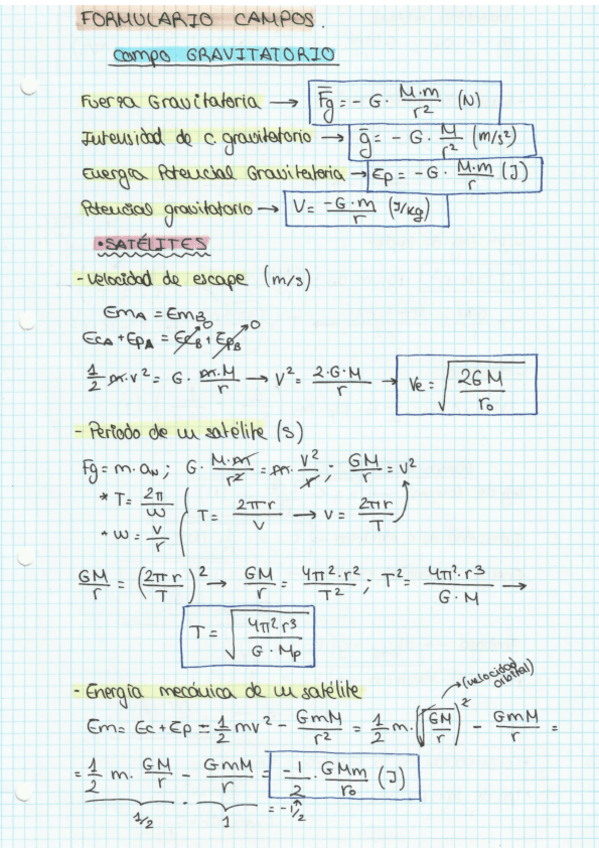 FORMULARIO CAMPOS.
Campo GRAVITATORIO
Fuerza Gravitatoria → F̅g = - G · M·m / r² (N)
Intensidad de C. gravitatorio → g̅ = - G · M / r² (m/s²)
Energía Potencial Gravitatoria → Ep = - G · M·m / r (J)
Potencial gravitatorio → V = -G·m / r (J/kg)
• SATÉLITES
- Velocidad de escape (m/s)
EmA = EmB
EcA + EpA = EcB 0 + EpB 0
1/2 m·v² = G · m·M / r → v² = 2·G·M / r → Ve = √(2GM / r₀)
- Periodo de un satélite (s)
Fg = m·aN ; G · M·m / r² = m · v² / r ; GM / r = v²
* T = 2π / ω
* ω = v / r
T = 2πr / v → v = 2πr / T
GM / r = (2πr / T)² → GM / r = 4π²·r² / T² ; T² = 4π²·r³ / G·M →
T = √(4π²·r³ / G·Mp)
- Energía mecánica de un satélite
→ (velocidad orbital)
Em = Ec + Ep = 1/2 mv² - GmM / r² = 1/2 m·(√(GM / r))² - GmM / r =
= 1/2 m · GM / r - GmM / r = -1/2 · GMm / r₀ (J)
1/2 - 1 = -1/2